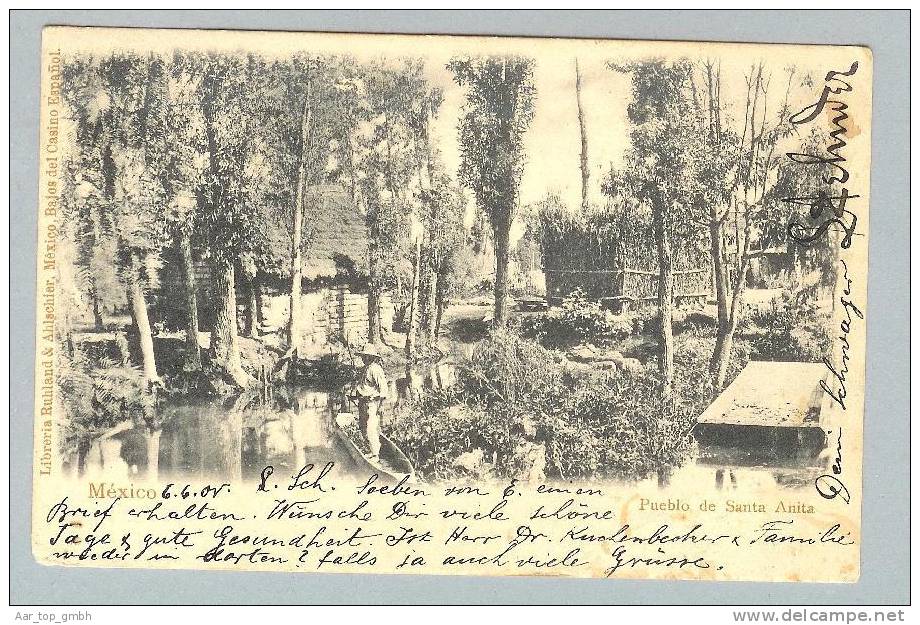 Libreria Ruhland & Ahlschier, México. Bajos del Casino Español.
México 6.6.05. L. Sch. Soeben von E. einen
Pueblo de Santa Anita
Brief erhalten. Wünsche Dir viele schöne
Tage & gute Gesundheit. Ist Herr Dr. Kuchenbecker & Familie
wieder in Horten? falls ja auch viele Grüsse.
Dein Schwager
Aar_top_gmbh
www.delcampe.net